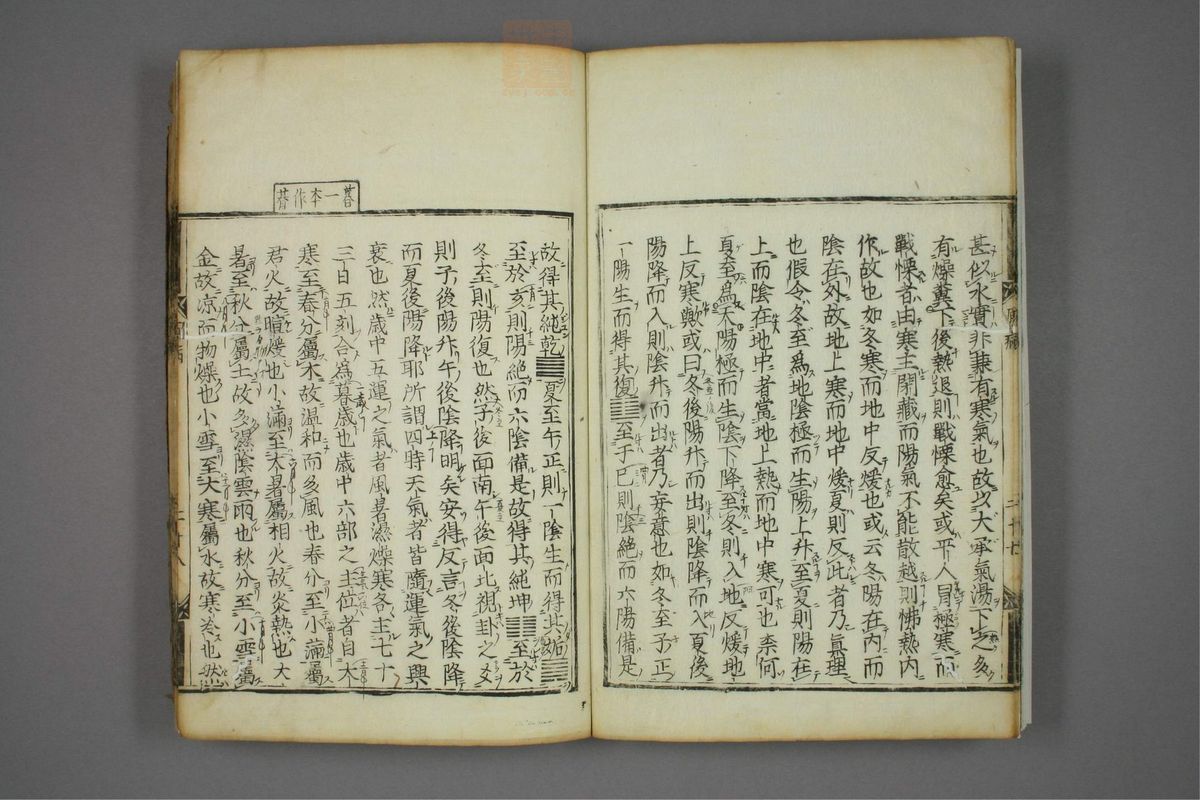 甚似水實非兼有寒氣也故以大承氣湯下之多
有燥糞下後熱退則戰慄愈矣或平人冒極寒而
戰慄者由寒主閉藏而陽氣不能散越則怫熱內
作故也如冬寒而地中反煖也或云冬陽在內而
陰在外故地上寒而地中煖夏則反此者乃眞理
也假令冬至爲地陰極而生陽上升至夏則陽在
上而陰在地中者當地上熱而地中寒可也奈何
夏至爲天陽極而生陰下降至冬則入地反煖地
上反寒歟或曰冬後陽升而出則陰降而入夏後
陽降而入則陰升而出者乃妄意也如冬至子正
一陽生而得其復䷗至于巳則陰絕而六陽備是
故得其純乾䷀夏至午正則一陰生而得其姤䷫
至於亥則陽絕而六陰備是故得其純坤䷁至於
冬至則陽復也然子後面南午後面北視卦之爻
則子後陽升午後陰降明矣安得反言冬後陰降
而夏後陽降耶所謂四時天氣者皆隨運氣之興
衰也然歲中五運之氣者風暑濕燥寒各主七十
三日五刻合爲暮歲也歲中六部之主位者自大
寒至春分屬木故温和而多風也春分至小滿屬
君火故暄煖也小滿至大暑屬相火故炎熱也大
暑至秋分屬土故多濕陰雲雨也秋分至小雪屬
金故凉而物燥也小雪至大寒屬水故寒冷也然
暮一本作朞